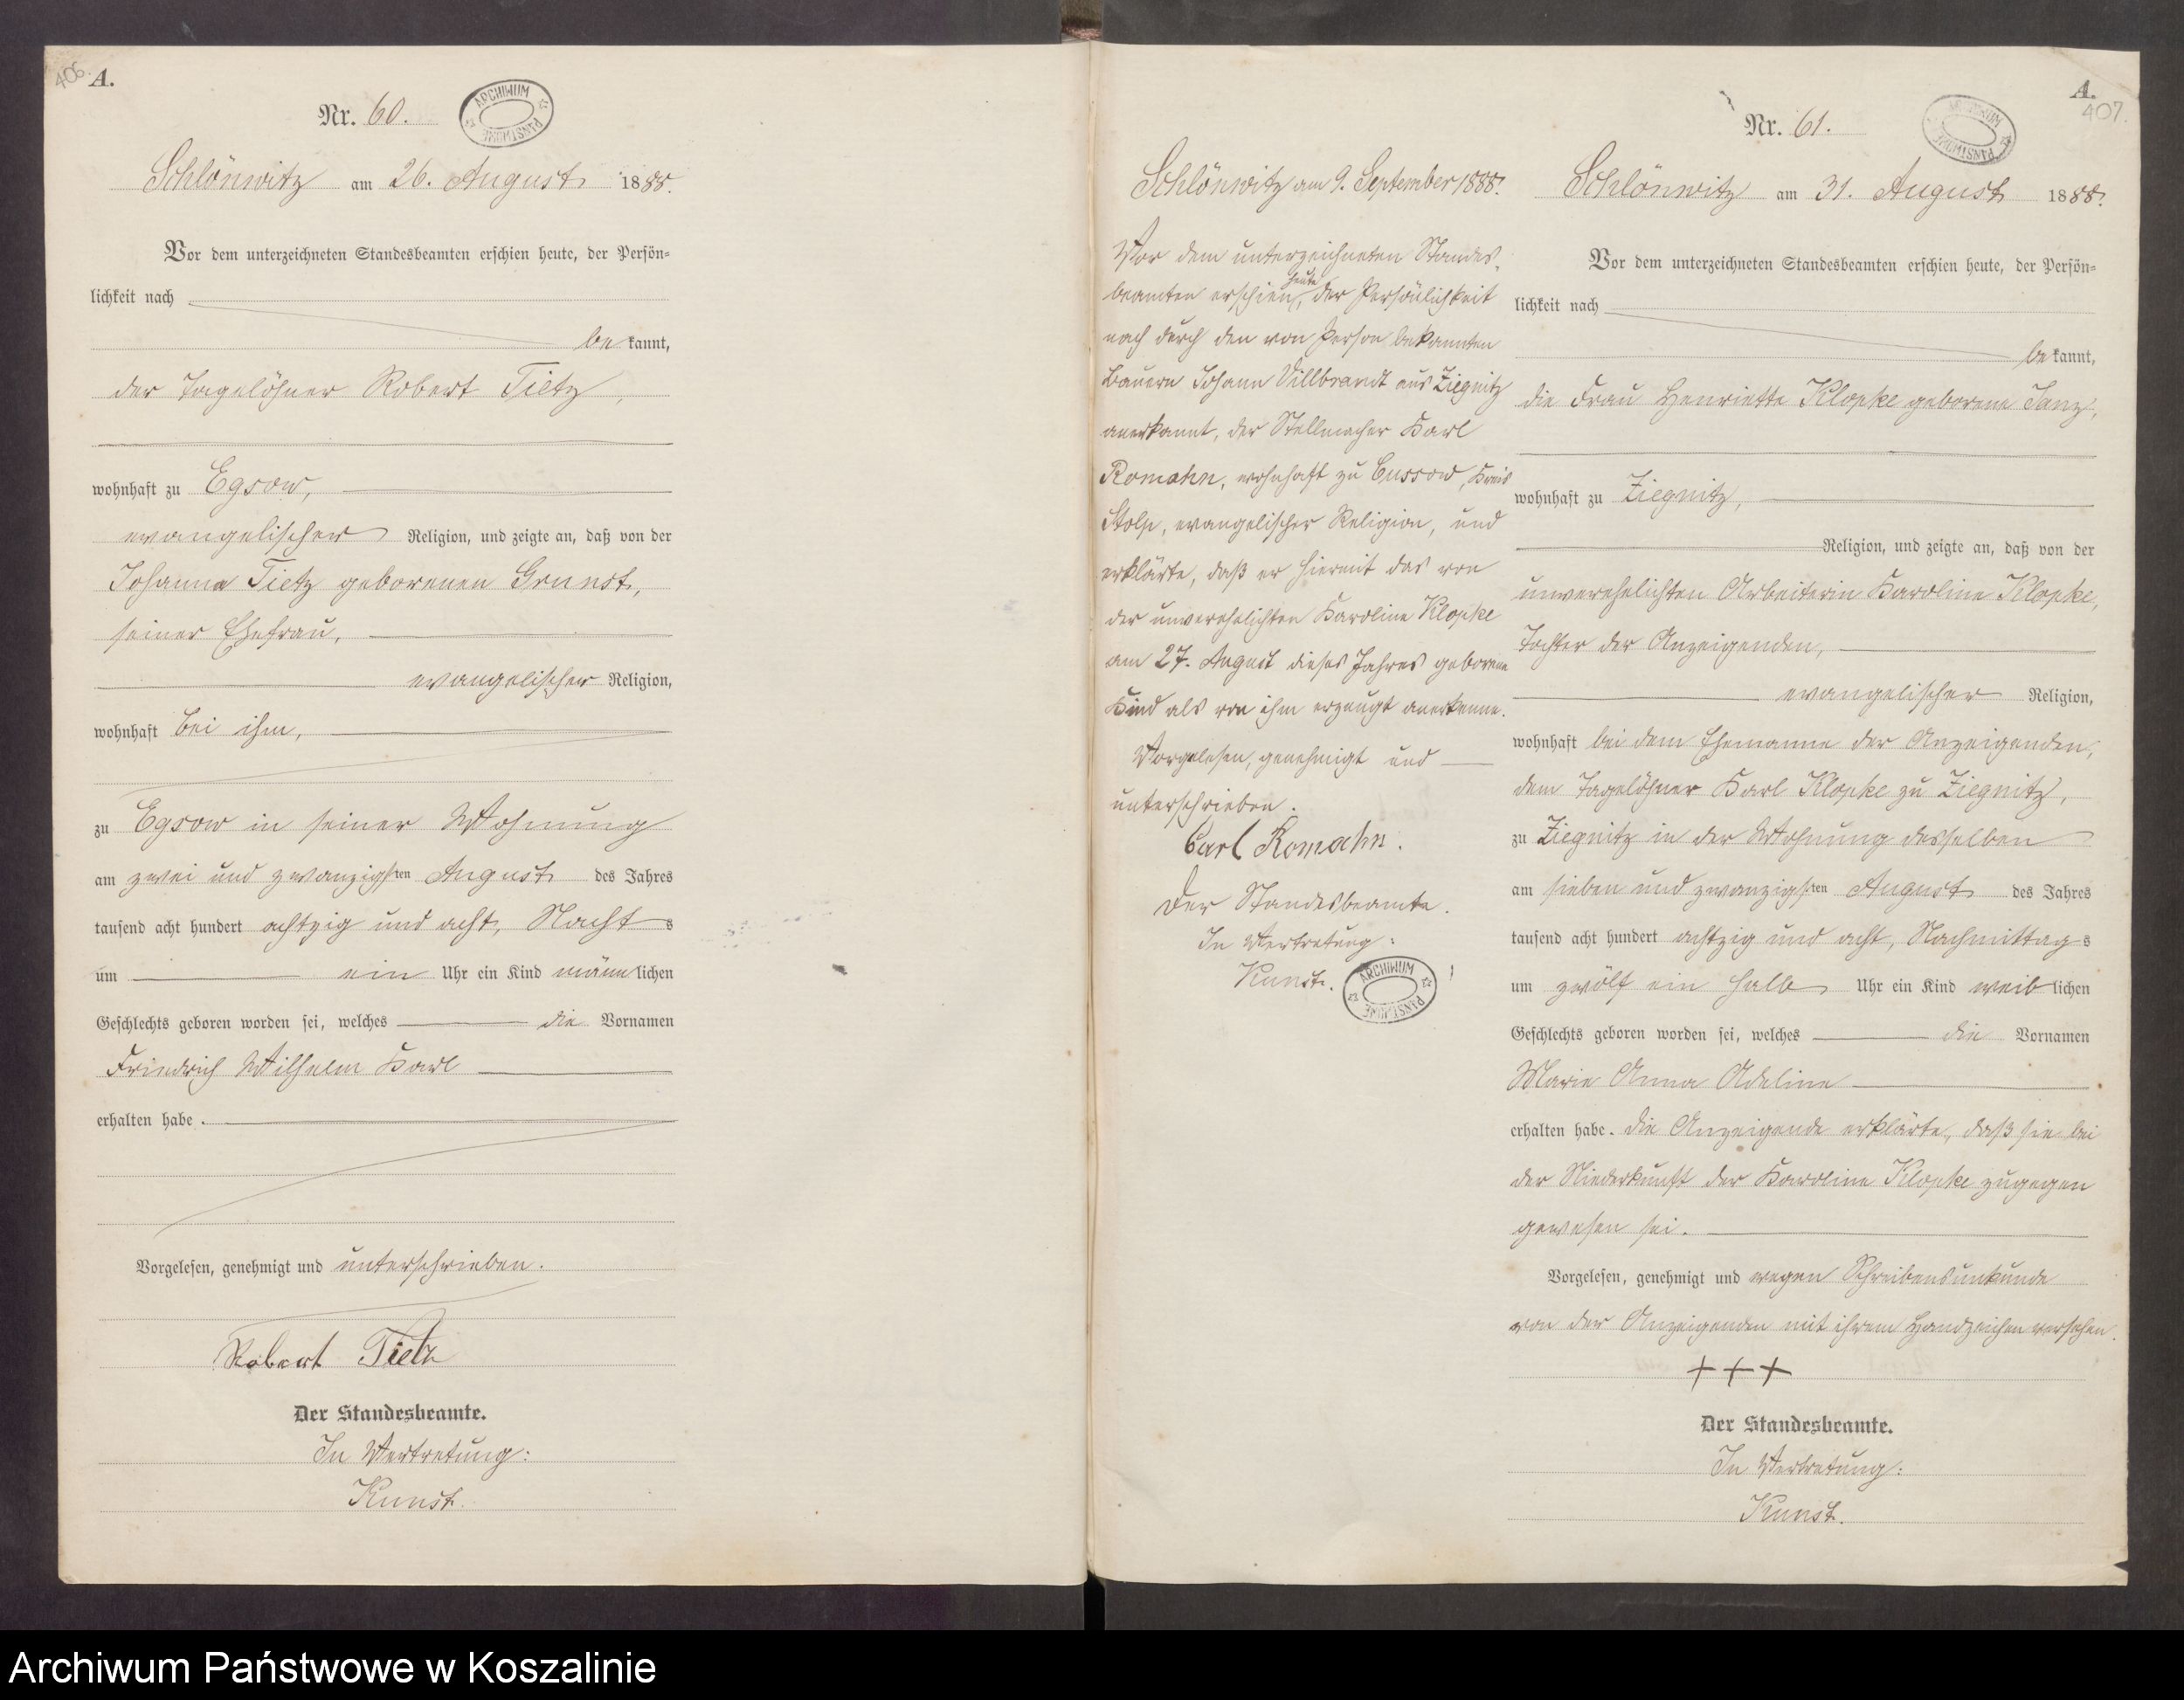 406.
A.
Nr. 60.
ARCHIWUM PAŃSTWOWE
Schlönwitz am 26. August 1888.
Vor dem unterzeichneten Standesbeamten erschien heute, der Persön-
lichkeit nach
bekannt,
der Tagelöhner Robert Tietz,
wohnhaft zu Egsow,
evangelischer Religion, und zeigte an, daß von der
Johanna Tietz geborenen Grunst,
seiner Ehefrau,
evangelischer Religion,
wohnhaft bei ihm,
zu Egsow in seiner Wohnung
am zwei und zwanzigsten August des Jahres
tausend acht hundert achtzig und acht, Nachts
um ein Uhr ein Kind männlichen
Geschlechts geboren worden sei, welches die Vornamen
Friedrich Wilhelm Karl
erhalten habe.
Vorgelesen, genehmigt und unterschrieben.
Robert Tietz
Der Standesbeamte.
In Vertretung:
Kunst.
Schlönwitz am 9. September 1888.
Vor dem unterzeichneten Standes-
beamten erschien heute, der Persönlichkeit
nach durch den von Person bekannten
Bauern Johann Villbrandt aus Ziegnitz
anerkannt, der Stellmacher Karl
Romahn, wohnhaft zu Cussow, Kreis
Stolp, evangelischer Religion, und
erklärte, daß er hiermit das von
der unverehelichten Karoline Klopke
am 27. August dieses Jahres geborene
Kind als von ihm erzeugt anerkenne.
Vorgelesen, genehmigt und
unterschrieben.
Carl Romahn.
Der Standesbeamte.
In Vertretung:
Kunst.
ARCHIWUM PAŃSTWOWE
A.
407.
Nr. 61.
ARCHIWUM PAŃSTWOWE
Schlönwitz am 31. August 1888.
Vor dem unterzeichneten Standesbeamten erschien heute, der Persön-
lichkeit nach
bekannt,
die Frau Henriette Klopke geborene Janz,
wohnhaft zu Ziegnitz,
Religion, und zeigte an, daß von der
unverehelichten Arbeiterin Karoline Klopke,
Tochter der Anzeigenden,
evangelischer Religion,
wohnhaft bei dem Ehemanne der Anzeigenden,
dem Tagelöhner Karl Klopke zu Ziegnitz,
zu Ziegnitz in der Wohnung desselben
am sieben und zwanzigsten August des Jahres
tausend acht hundert achtzig und acht, Nachmittags
um zwölf ein halb Uhr ein Kind weiblichen
Geschlechts geboren worden sei, welches die Vornamen
Marie Anna Adeline
erhalten habe. Die Anzeigende erklärte, daß sie bei
der Niederkunft der Karoline Klopke zugegen
gewesen sei.
Vorgelesen, genehmigt und wegen Schreibensunkunde
von der Anzeigenden mit ihrem Handzeichen versehen.
+++
Der Standesbeamte.
In Vertretung:
Kunst.
Archiwum Państwowe w Koszalinie